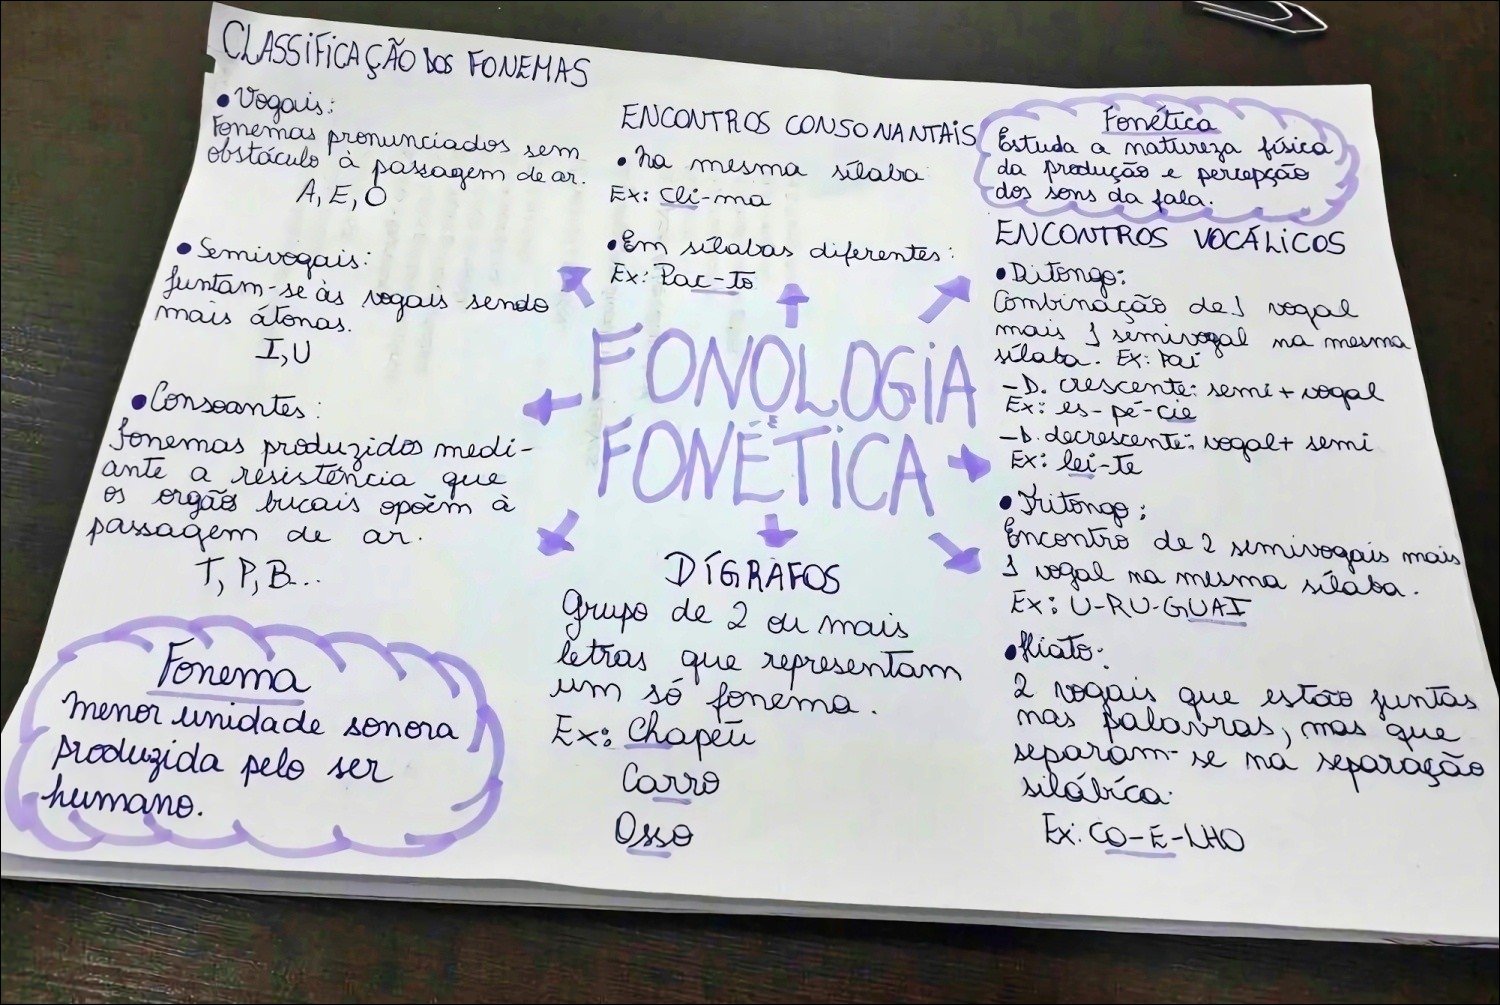 CLASSIFICAÇÃO DOS FONEMAS
• Vogais:
Fonemas pronunciados sem
obstáculo à passagem de ar.
A, E, O
• Semivogais:
Juntam-se às vogais sendo
mais átonas.
I, U
• Consoantes:
fonemas produzidos medi-
ante a resistência que
os orgãos bucais opõem à
passagem de ar.
T, P, B...
Fonema
menor unidade sonora
produzida pelo ser
humano.
ENCONTROS CONSONANTAIS
• na mesma sílaba
Ex: Cli-ma
• Em sílabas diferentes:
Ex: Pac-to
FONOLOGIA
E
FONÉTICA
DÍGRAFOS
Grupo de 2 ou mais
letras que representam
um só fonema.
Ex: Chapéu
Carro
Osso
Fonética
Estuda a natureza física
da produção e percepção
dos sons da fala.
ENCONTROS VOCÁLICOS
• Ditongo:
Combinação de 1 vogal
mais 1 semivogal na mesma
sílaba. Ex: Pai
- D. crescente: semi + vogal
Ex: es-pé-cie
- D. decrescente: vogal + semi
Ex: lei-te
• Tritongo:
Encontro de 2 semivogais mais
1 vogal na mesma sílaba.
Ex: U-RU-GUAI
• Hiato:
2 vogais que estão juntas
nas palavras, mas que
separam-se na separação
silábica.
Ex: CO-E-LHO